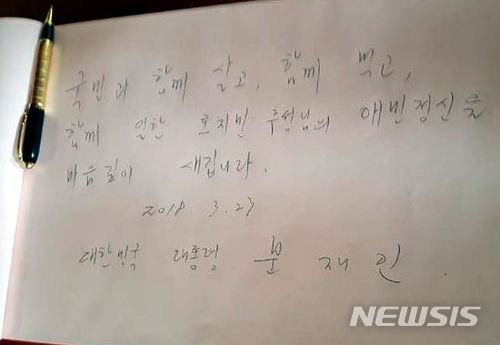 국민과 함께 살고, 함께 먹고,
함께 일한 호치민 주석님의 애민정신을
마음 깊이 새깁니다.
2018. 3. 23
대한민국 대통령 문 재 인
NEWSIS